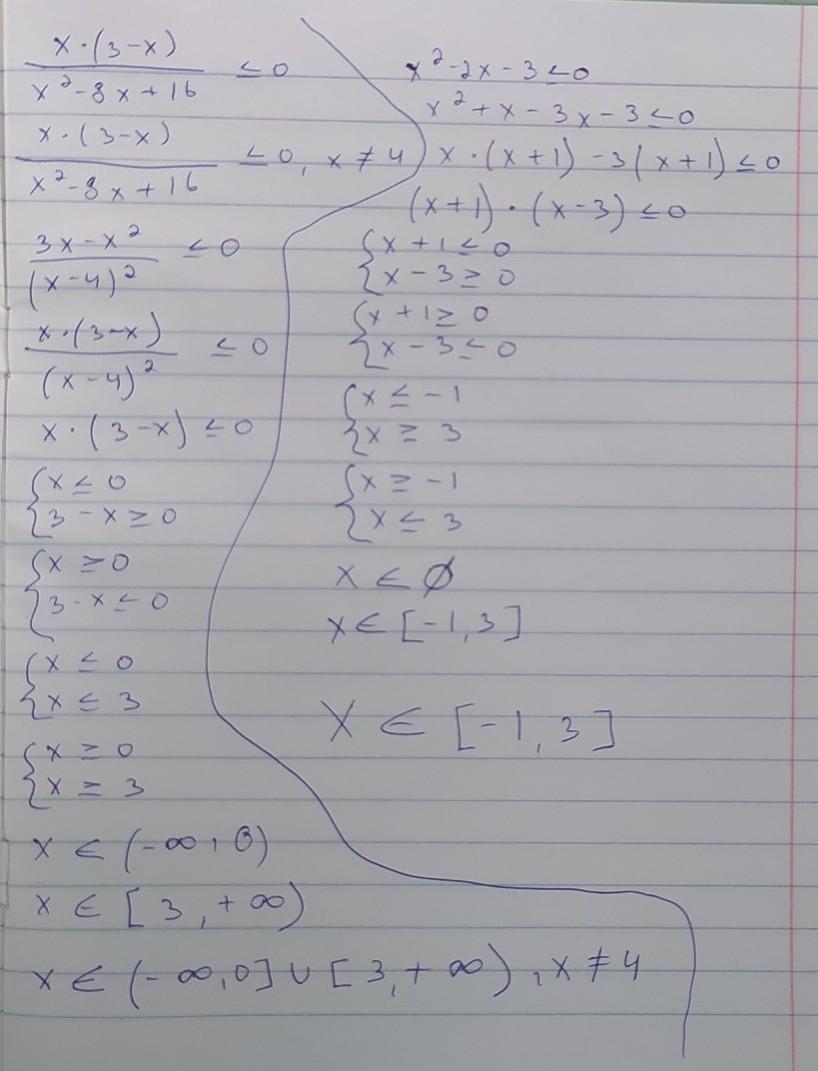 x·(3-x)/x²-8x+16 ≤0
x·(3-x)/x²-8x+16 ≤0, x≠4
3x-x²/(x-4)² ≤0
x·(3-x)/(x-4)² ≤0
x·(3-x)≤0
{x≤0
{3-x≥0
{x≥0
{3-x≤0
{x≤0
{x≤3
{x≥0
{x≥3
x∈(-∞,0)
x∈[3,+∞)
x∈(-∞,0]∪[3,+∞), x≠4
x²-2x-3≤0
x²+x-3x-3≤0
x·(x+1)-3(x+1)≤0
(x+1)·(x-3)≤0
{x+1≤0
{x-3≥0
{x+1≥0
{x-3≤0
{x≤-1
{x≥3
{x≥-1
{x≤3
x∈∅
x∈[-1,3]
x∈[-1,3]